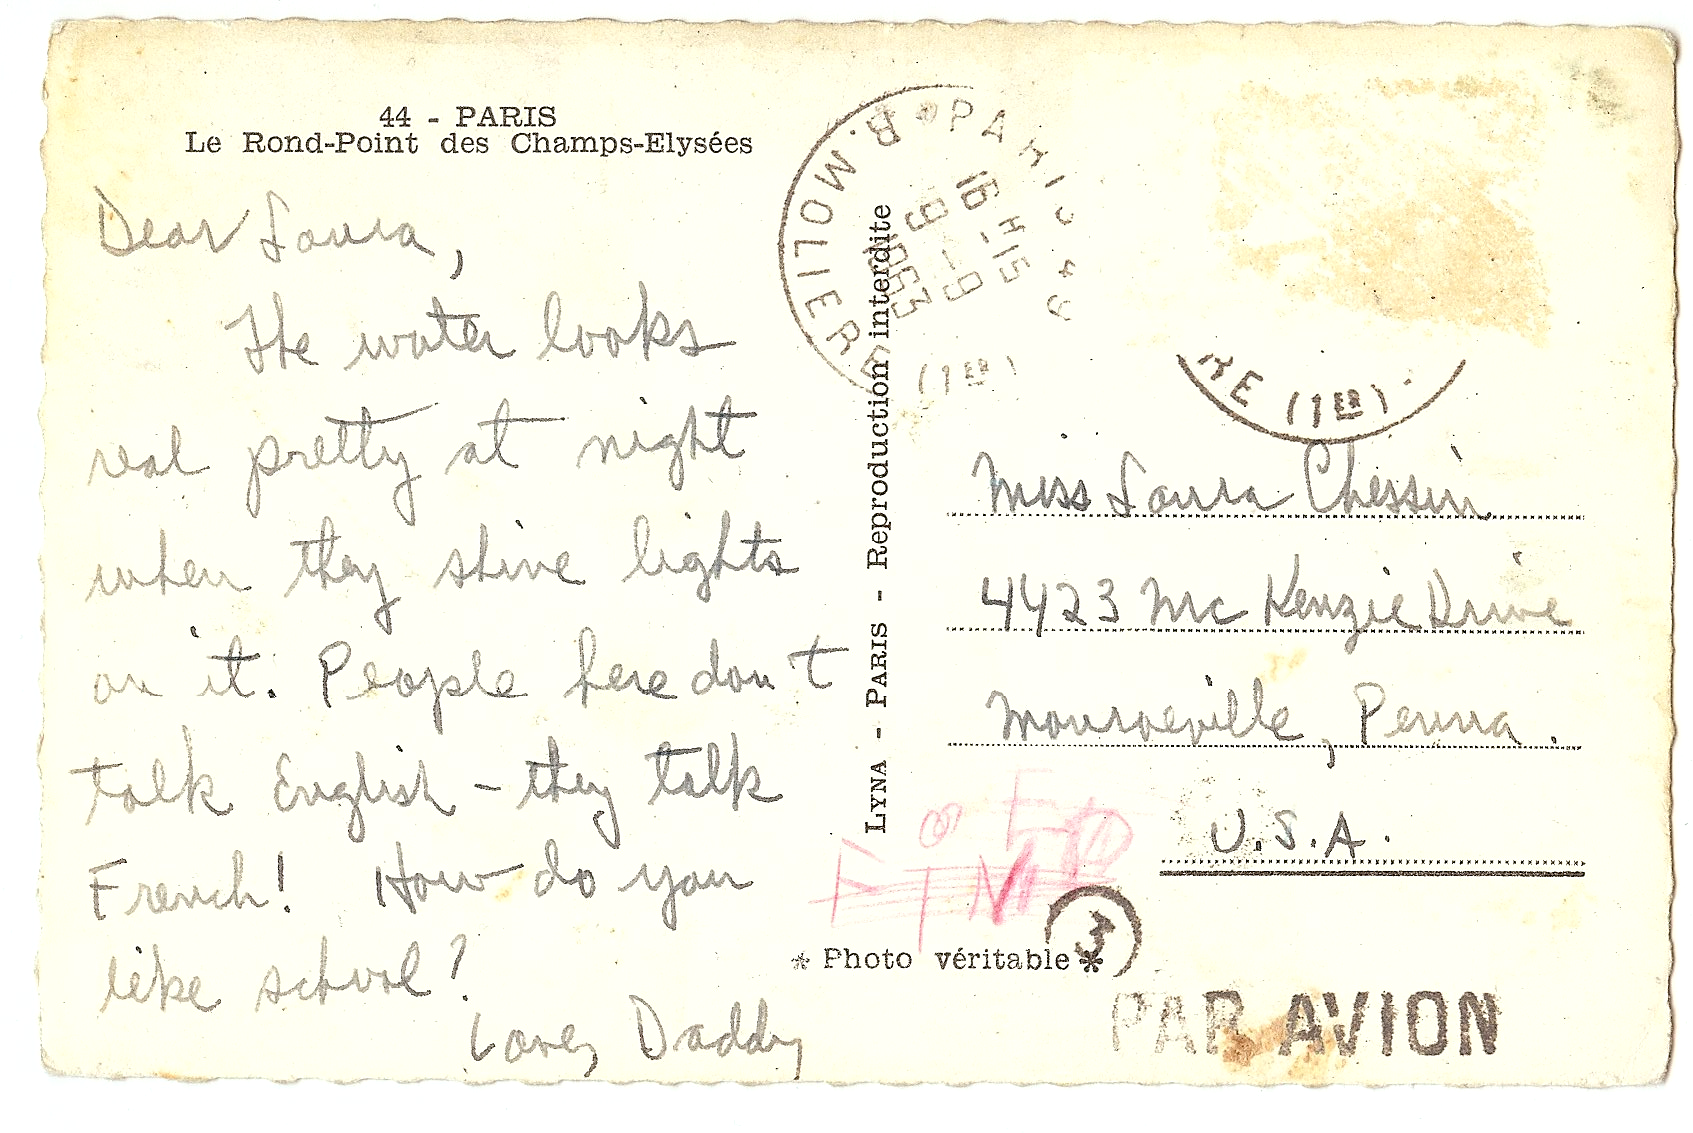 44 - PARIS
Le Rond-Point des Champs-Elysées
Dear Laura,
The water looks
real pretty at night
when they shine lights
on it. People here don't
talk English - they talk
French! How do you
like school?
Love, Daddy
LYNA - PARIS - Reproduction interdite
PARIS 49
R. MOLIERE
16 H 15
9 - 9
1963
(1ER)
RE (1ER).
Miss Laura Chessin
4423 McKenzie Drive
Monroeville, Penna.
U.S.A.
3
* Photo véritable *
PAR AVION